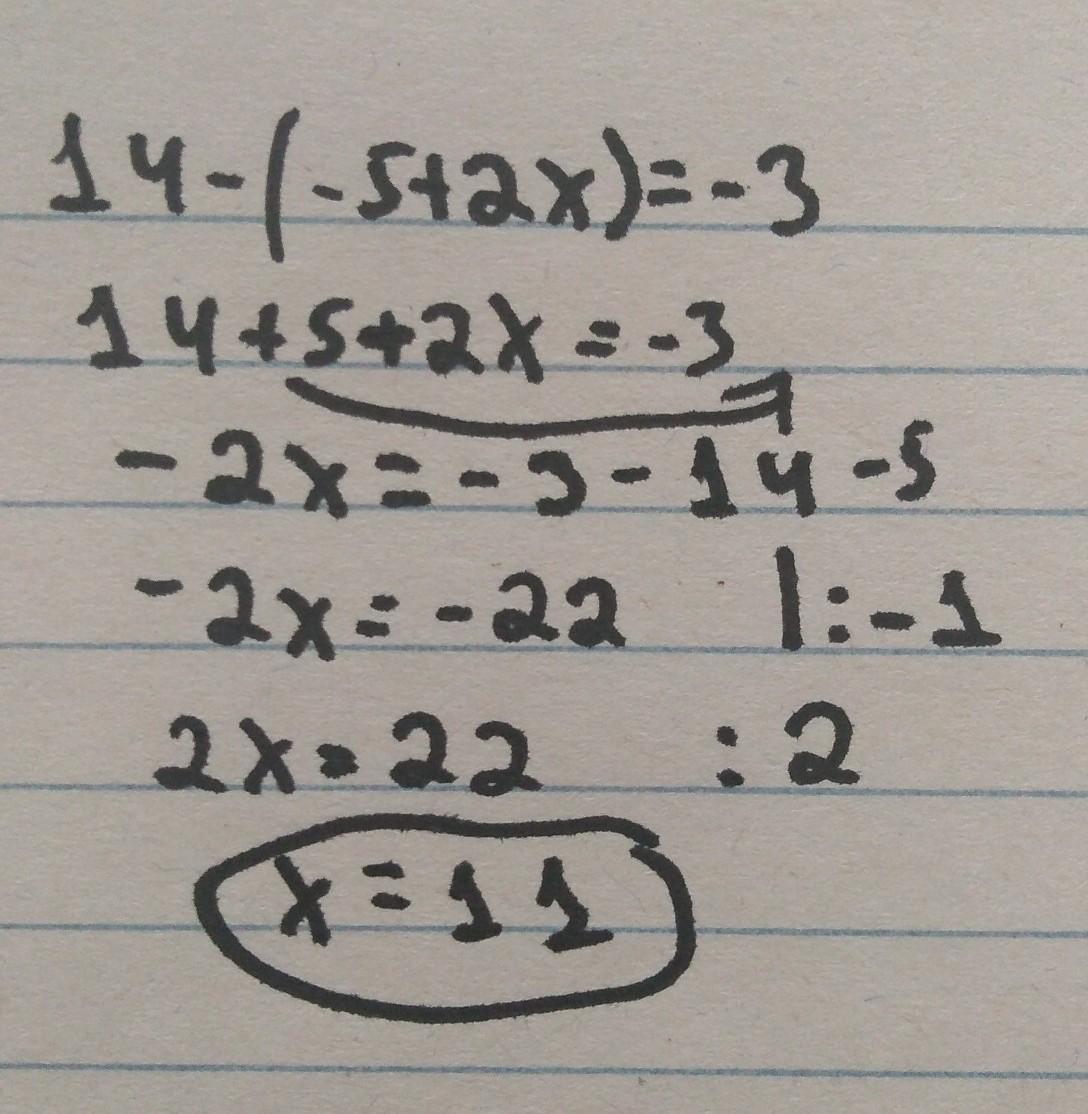 14-(-5+2x)=-3
14+5+2x=-3
-2x=-3-14-5
-2x=-22 |:-1
2x=22 :2
x=11